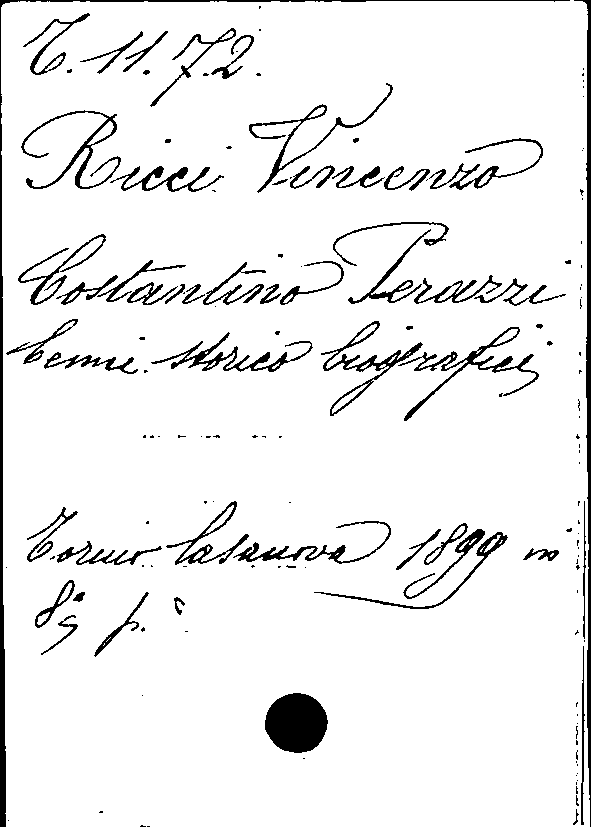 T. 11. 72.
Ricci Vincenzo
Costantino Perazzi
Cenni storico biografici
Torino Casanova 1899 in
8°, p.°